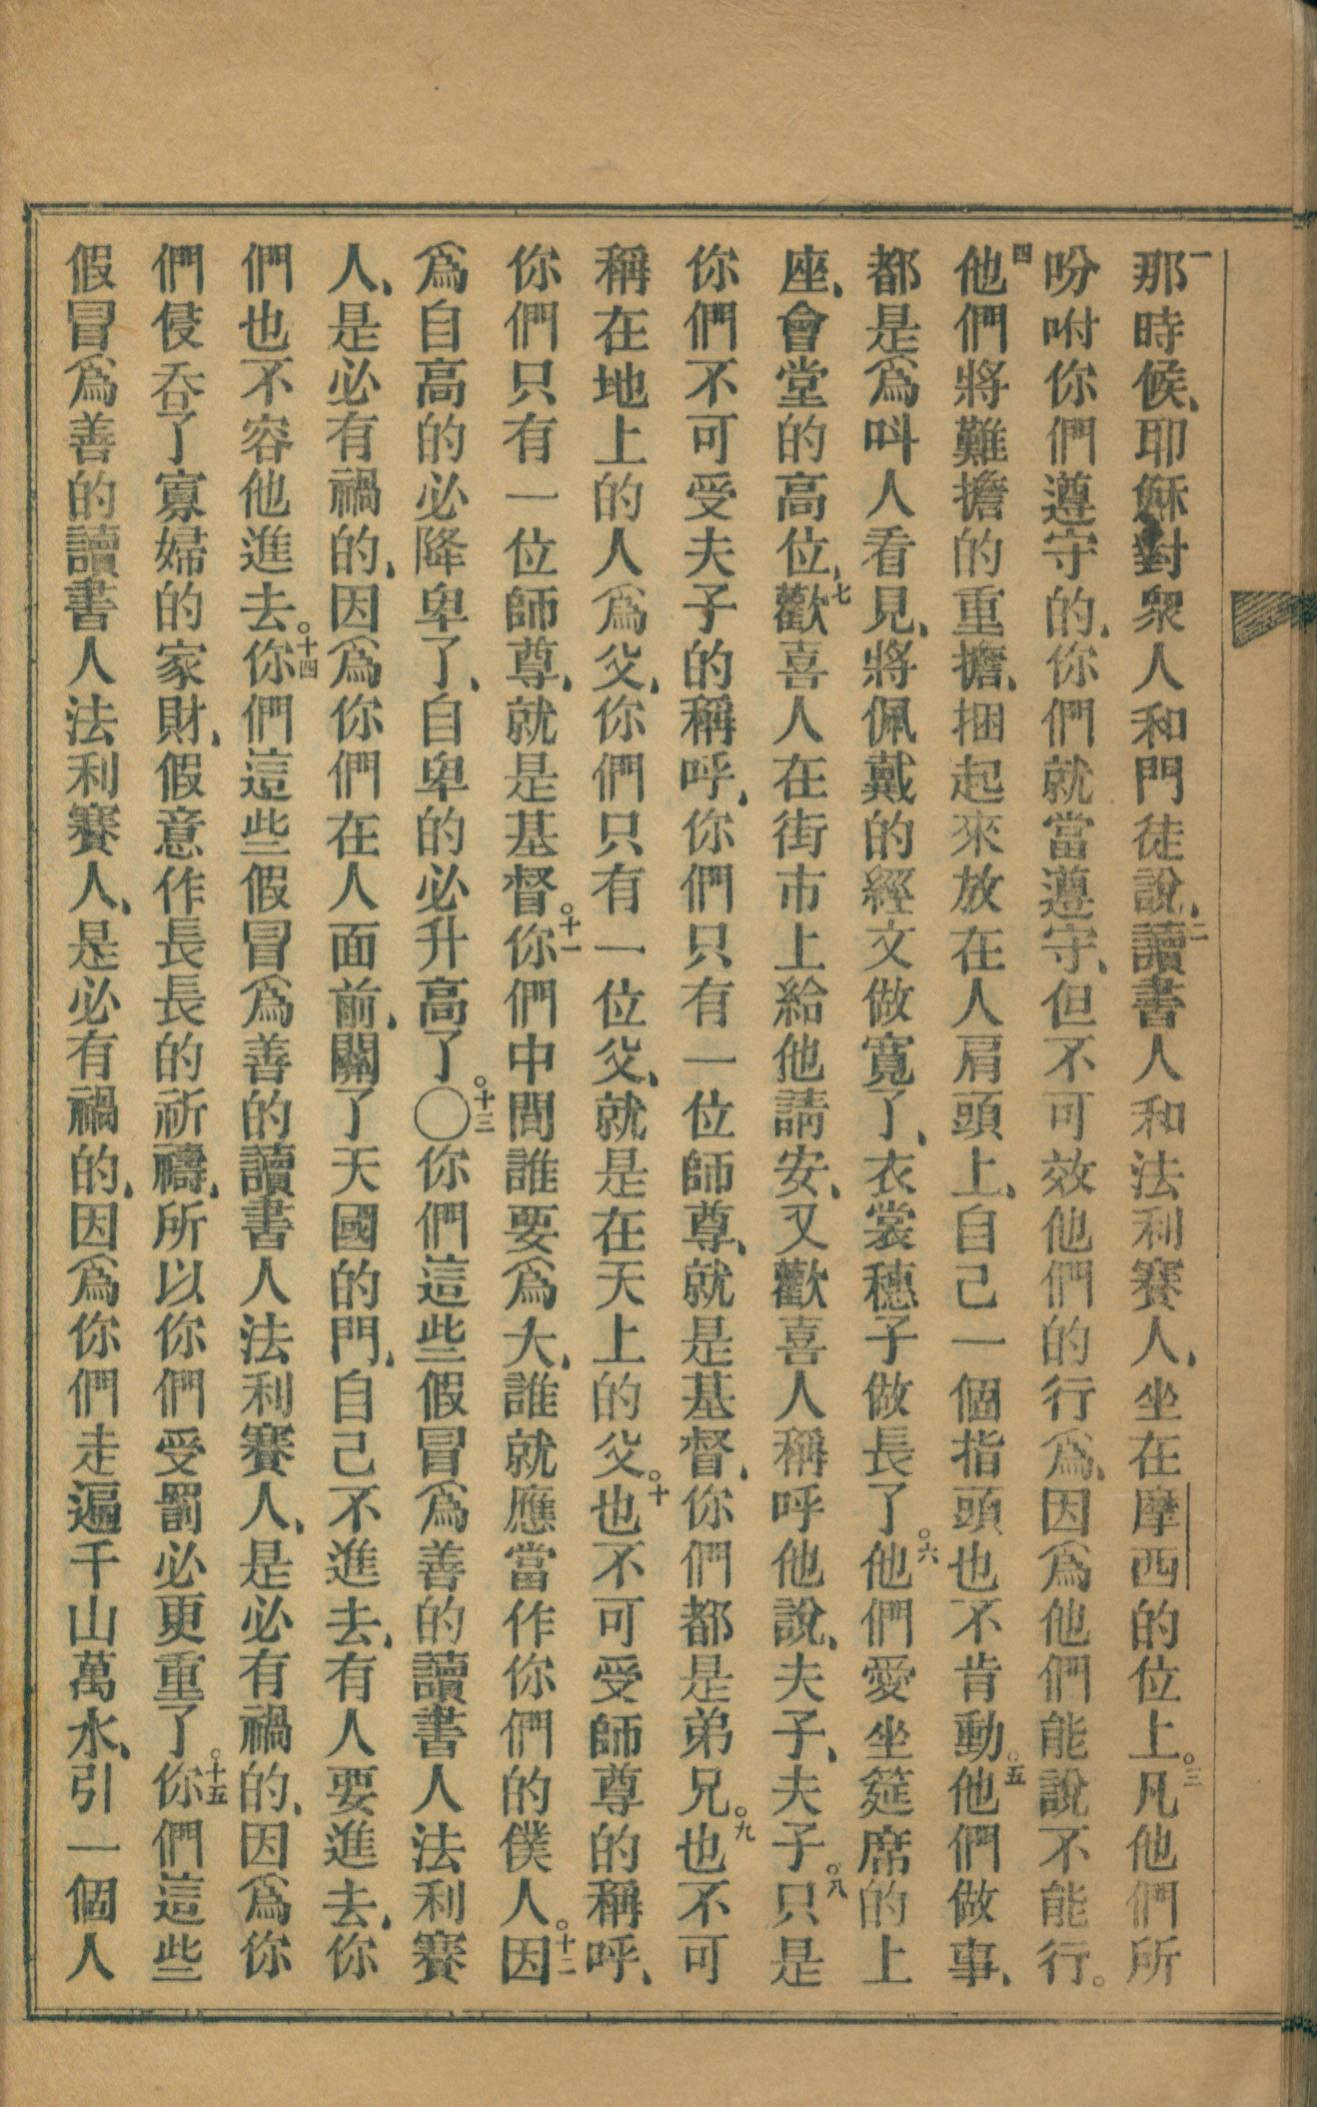 一那時候、耶穌對眾人和門徒說、二讀書人和法利賽人、坐在摩西的位上。三凡他們所
吩咐你們遵守的、你們就當遵守、但不可效他們的行爲、因爲他們能說不能行。
四他們將難擔的重擔、捆起來放在人肩頭上、自己一個指頭也不肯動。五他們做事、
都是爲叫人看見、將佩戴的經文做寬了、衣裳穗子做長了。六他們愛坐筵席的上
座、會堂的高位、七歡喜人在街市上給他請安、又歡喜人稱呼他說、夫子、夫子。八只是
你們不可受夫子的稱呼、你們只有一位師尊、就是基督、你們都是弟兄。九也不可
稱在地上的人爲父、你們只有一位父、就是在天上的父。十也不可受師尊的稱呼、
你們只有一位師尊、就是基督。十一你們中間誰要爲大、誰就應當作你們的僕人。十二因
爲自高的必降卑了、自卑的必升高了。〇十三你們這些假冒爲善的讀書人法利賽
人、是必有禍的、因爲你們在人面前、關了天國的門、自己不進去、有人要進去、你
們也不容他進去。十四你們這些假冒爲善的讀書人法利賽人、是必有禍的、因爲你
們侵吞了寡婦的家財、假意作長長的祈禱、所以你們受罰必更重了。十五你們這些
假冒爲善的讀書人法利賽人、是必有禍的、因爲你們走遍千山萬水、引一個人